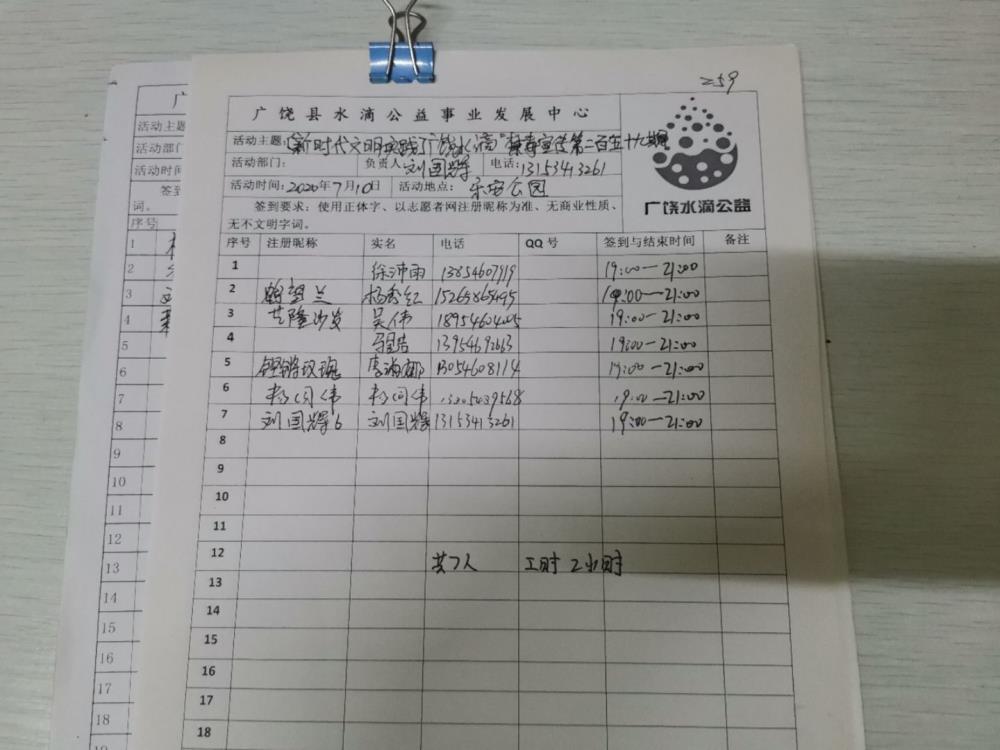 259
广饶县水滴公益事业发展中心
活动主题:"新时代文明实践广饶水滴"禁毒宣传第二百五十九期
活动部门: 负责人:刘国辉 电话:13153413261
活动时间:2020年7月10日 活动地点:乐安公园
广饶水滴公益
签到要求:使用正体字、以志愿者网注册昵称为准、无商业性质、
无不文明字词。
序号 注册昵称 实名 电话 QQ号 签到与结束时间 备注
1 徐沛雨 13854607919 19:00—21:00
2 兰 杨秀红 15265865495 19:00—21:00
3 艺隆沙发 吴伟 18954604005 19:00—21:00
4 13954692663 19:00—21:00
5 铿锵玫瑰 李 13054608114 19:00—21:00
6 19:00—21:00
7 刘国辉6 刘国辉 13153413261 19:00—21:00
8
9
10
11
12 共7人 工时 2小时
13
14
15
16
17
18
广
活动主题
活动部门
活动时间
签到
词。
序号
1
2
3
4
5
6
7
8
9
10
11
12
13
14
15
16
17
18